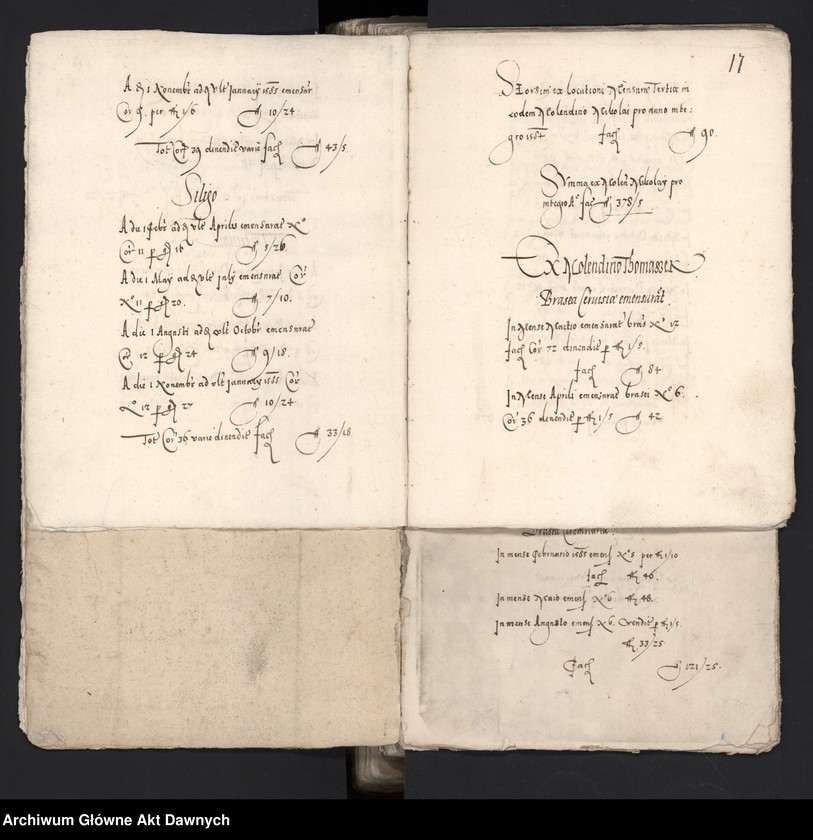 A die 1 Novembr ad vlt Januarÿ 1585 emensurat
Cor 9. per 1/6 fl 10/24
Tot Cor 39 divendit varie fach fl 43/5.
Siligo
A die 1 Febr ad vlt Aprilis emensurat No
Cor 11 p 16 fl 5/26.
A die 1 Maÿ ad vlt Julÿ emensurat Cor
No 11 p 20. fl 7/10.
A die 1 Augusti ad vlt Octobr emensurat
Cor 12 p 24 fl 9/18.
A die 1 Novembr ad vlt Januarÿ 1585 Cor
No 12 p 27 fl 10/24
Tot Cor 36 varie divendit fach fl 33/18
17
Seorsim ex locatione Mensurae Tertiae in
eodem Molendino Nicolai pro anno inte:
gro 1584 fach fl 90.
Summa ex Molen Nicolaÿ pro
integro Ao fac fl 378/5
Ex Molendino Thomassek
Brasea Cervisia emensurat.
In Mense Martio emensurat bras No 12
fach Cor 72 divendit p fl 1/5.
fach fl 84
In Mense Aprili emensurat brasei No 6.
Cor 36 divendit p fl 1/5 fl 42
Brasea
In mense Februario 1585 emens No 5 per fl 1/10
fach fl 46.
In mense Maio emens No 6 fl 48.
In mense Augusto emens No 6. vendit p fl 1/5.
fl 33/25
Fach fl 121/25.
Archiwum Główne Akt Dawnych